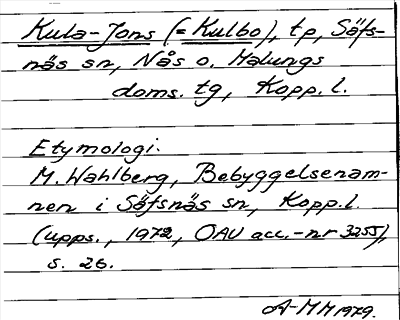 Kula-Jons (= Kulbo), tp, Säfs-
näs sn, Nås o. Malungs
doms. tg, Kopp. l.
Etymologi:
M. Wahlberg, Bebyggelsenam-
nen i Säfsnäs sn, Kopp. l.
(upps., 1972, OAU acc.-nr 3255),
s. 26.
A-MM 1979.